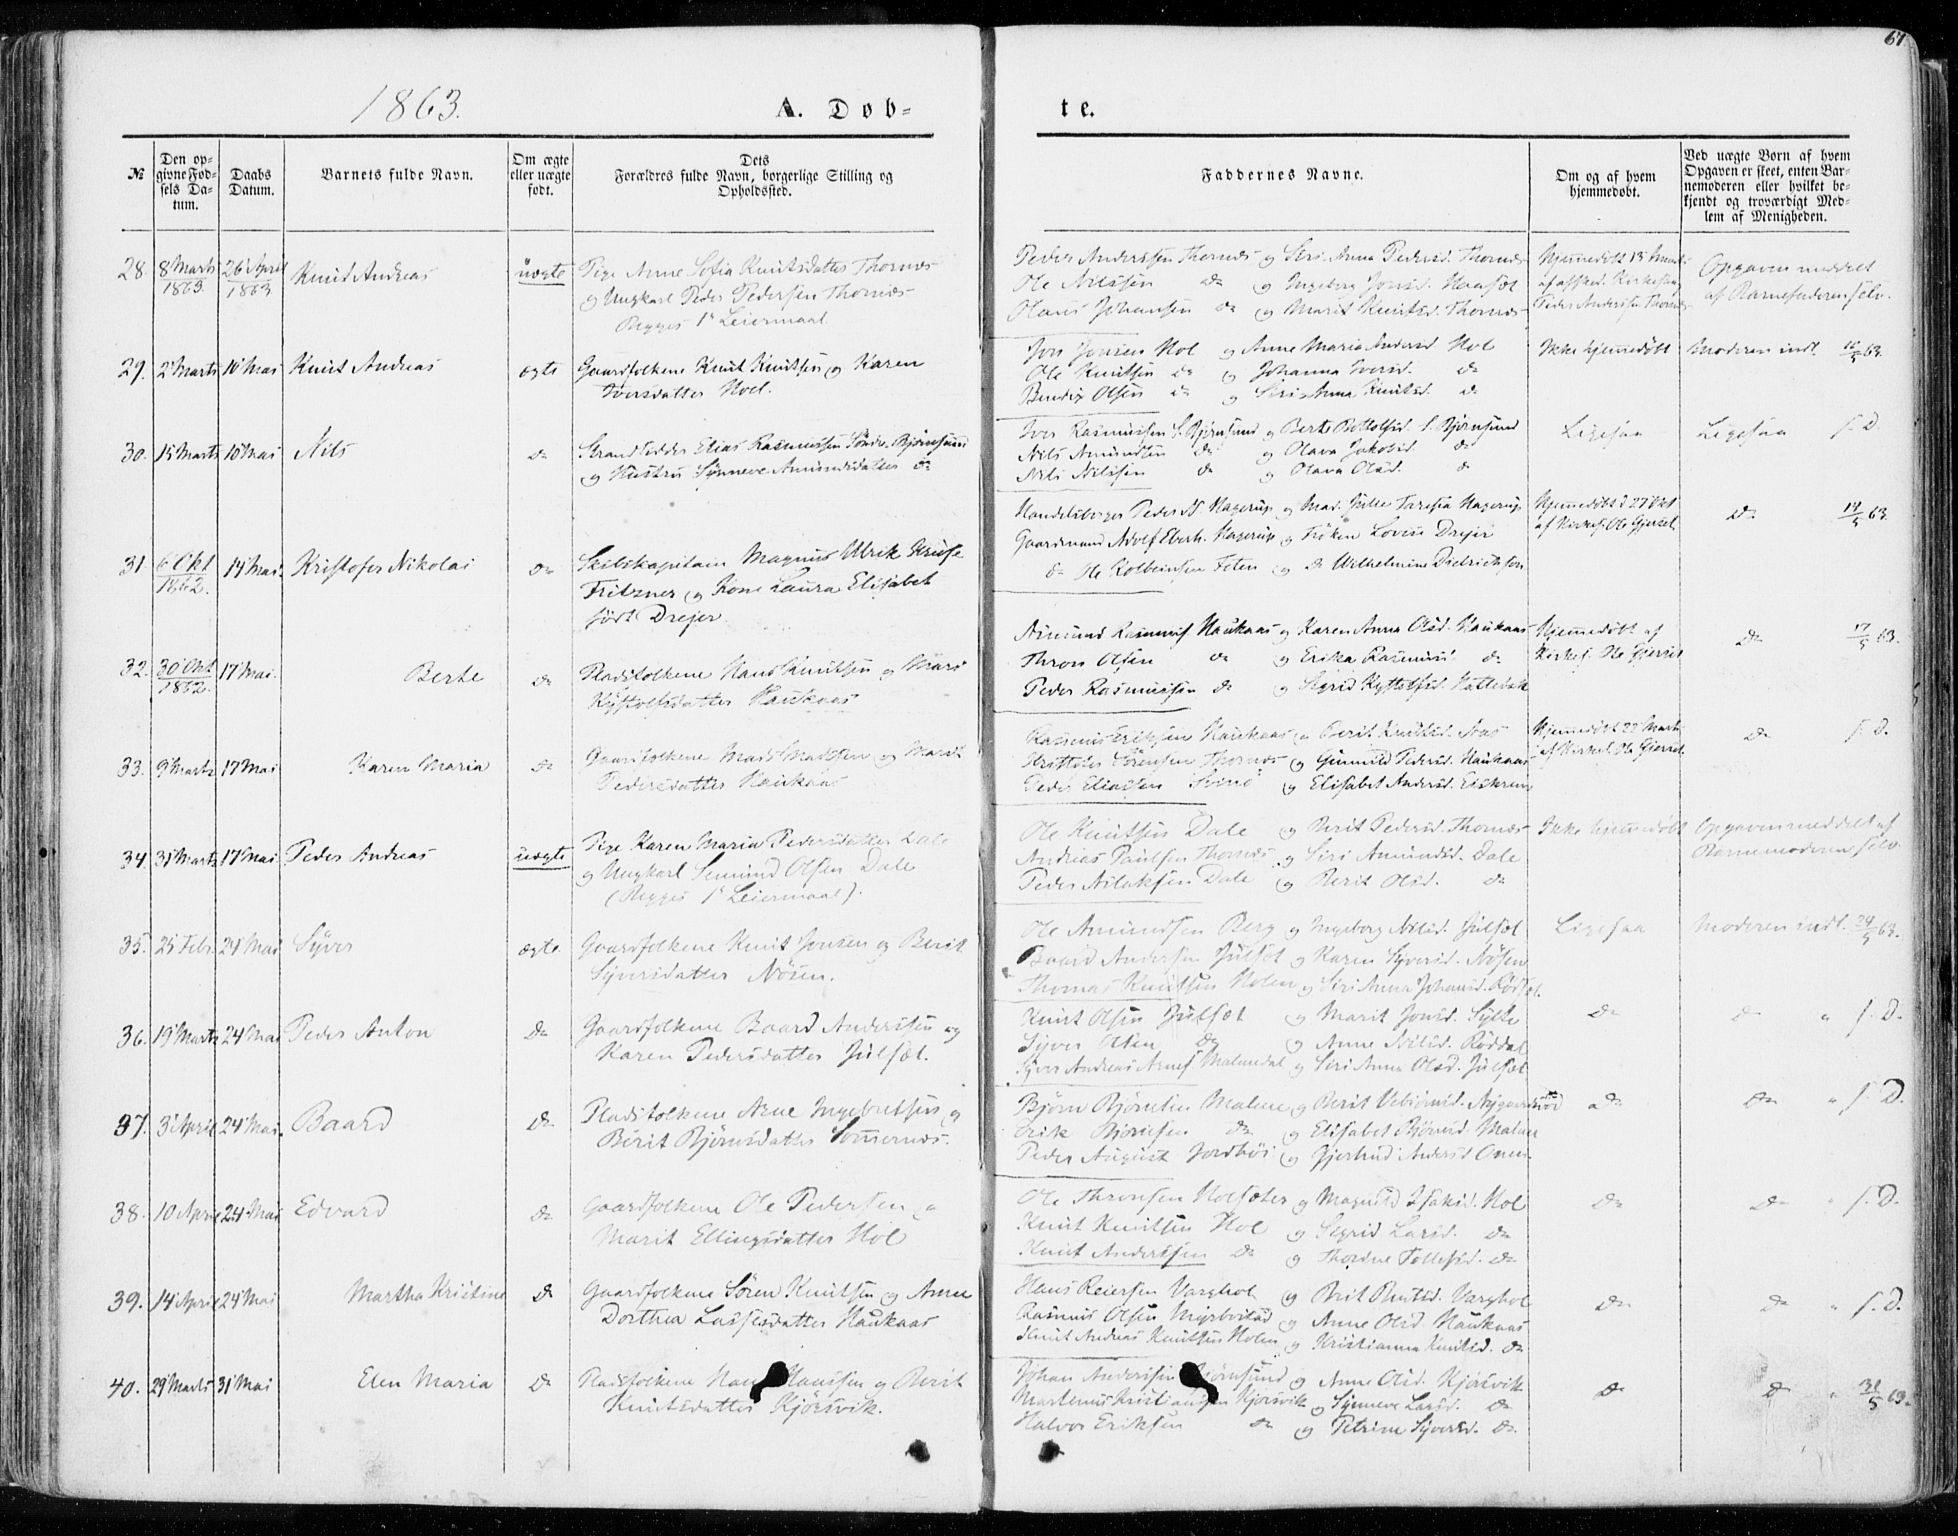 67
1863.
A. Døb-
te.
№
Den op-
givne Fød-
sels Da-
tum.
Daabs
Datum.
Barnets fulde Navn.
Om ægte
eller uægte
født.
Dets
Forældres fulde Navn, borgerlige Stilling og
Opholdssted.
Faddernes Navne.
Om og af hvem
hjemmedøbt.
Ved uægte Børn af hvem
Opgaven er skeet, enten Bar-
nemoderen eller hvilket be-
kjendt og troværdigt Med-
lem af Menigheden.
28. 8 Marts 1863. 26 April 1863 Knud Andreas uægte Pige Anne Sofia Knutsdatter Thornæs
og Ungkarl Peder Pedersen Thornæs
Begges 1ste Leiermaal
Peder Anderssen Thornæs og Siri Anna Pedersd. Thornæs
Ole Nilssen do og Ingeborg Jonsd.
Olaus Johansen do og Marit Knutsd. Thornæs
Hjemmedøbt
Peder Anderssen Thornæs
Opgaven meddelt
af Barnefaderen selv.
29. 2 Marts 10 Mai Knut Andreas ægte Gaardfolkene Knut Knutssen og Karen
Iversdatter Hoel.
Jon Jonsen Hol og Anne Maria Andersd Hol
Ole Knutsen do og Johanna Iversd. do
Bendix Olsen do og Siri Anna Knutsd. do
Ikke hjemmedøbt
Moderen indl. 10/5 63.
30. 15 Marts 10 Mai Nils do Strandsidder Elias Rasmussen Søndre Bjørnsund
og Hustru Synneve Amundsdatter do
Iver Rasmussen S. Bjørnsund og Berte Bottolfsd. S. Bjørnsund
Nils Amundsen do og Olava Jakobsd. do
Nils Nilssen do og Olava Olsd. do
Ligesaa
Ligesaa s. D.
31. 6 Okt 1862. 14 Mai. Kristofer Nikolai do Skibskapitain Magnus Ulrik Kruse
Fritzner og Kone Laura Elisabet
født Drejer
Handelsborger Peder N. Hagerup og Mad. Julie Taresia Hagerup
Gaardmand Adolf Eberh. Hagerup og Frøken Lovise Drejer
do Ole Kolbeinsen Foten og do Wilhelmine Diedrichson
Hjemmedøbt d 27 Okt
af Kirkes. Ole Gjersel.
do 14/5 63.
32. 30 Okt 1862. 17 Mai. Berte do Pladsfolkene Hans Knutssen og Mari
Haukaas
Amund Rasmuss Haukaas og Karen Anna Olsd. Haukaas
Thron Olsen do og Erika Rasmusd do
Peder Rasmussen do og Sigrid
Hjemmedøbt af
Kirkes. Ole Gjersel
do 17/5 63.
33. 9 Marts 17 Mai Karen Maria do Gaardfolkene Mads Madssen og Marit
Pedersdatter Haukaas
Rasmus Eriksen Haukaas og Berit Knutsd. Aas
Kristofer Sørensen Thornæs og Gunnild Pedersd. Haukaas
Peder Eliassen og Elisabet Andersd. Eiskrem
Hjemmedøbt 22 Marts
af Kirkes. Ole Gjersel.
do s. D.
34. 31 Marts 17 Mai Peder Andreas uægte Pige Karen Maria Pedersdatter Dale
og Ungkarl Semund Olsen Dale
(Begges 1ste Leiermaal).
Ole Knutsen Dale og Berit Pedersd. Thornæs
Andreas Paulsen Thornæs og Siri Amundsd. Dale
Peder Aslaksen Dale og Berit Olsd. do
Ikke hjemmedøbt
Opgaven meddelt af
Barnemoderen selv.
35. 25 Febr. 24 Mai Syver ægte Gaardfolkene Knut Jonsen og Berit
Syversdatter Nøsen.
Ole Amundsen Berg og Ingeborg Nilsd. Julsæt
Baard Andersen Julsæt og Karen Syversd. Nøsen
Thomas Knutsen Holen og Siri Anna Johansd.
Ligesaa
Moderen indl. 24/5 63.
36. 19 Marts 24 Mai Peder Anton do Gaardfolkene Baard Anderssen og
Karen Pedersdatter Julsæt.
Knut Olsen Julsæt og Marit Jonsd. Sylte
Syver Olsen do og Anne Nilsd. Røddal
Iver Andreas Arnes Malmedal og Siri Anna Olsd. Julsæt
do
do " s. D.
37. 3 April 24 Mai. Baard do Pladsfolkene Arne Ingebretsen og
Berit Bjørnsdatter Sommernæs.
Bjørn Bjørnsen Malme og Berit
Erik Bjørnsen do og Elisabet Bjørnsd. Malme
Peder August Jordhøi og Gjertrud Andersd
do
do " s. D.
38. 10 April 24 Mai Edvard do Gaardfolkene Ole Pedersen og
Marit Ellingsdatter Hol
Ole Thronsen Holsæter og Magnild Isaksd. Hol
Knut Knutsen Hol og Sigrid Larsd. do
Knut Anderssen do og Thordne Tollefsd. do
do
do " s. D.
39. 14 April 24 Mai Martha Kristine do Gaardfolkene Søren Knutsen og Anne
Dorthea Lassesdatter Haukaas
Hans Reiersen Varghol og Brit Knutsd. Varghol
Rasmus Olsen og Anne Olsd Haukaas
Knut Andreas Knutsen Holen og Kristianna Knutsd. do
do
do " s. D.
40. 29 Marts 31 Mai Elen Maria do Pladsfolkene Hans Hanssen og Berit
Knutsdatter Kjørsvik.
Johan Anderssen Bjørnsund og Anne Olsd. Kjørsvik
Martenus Kristiansen Kjørsvik og Synneve Larsd. do
Halvor Eriksen do og Petrine Syversd. do
do
do " 31/5 63.